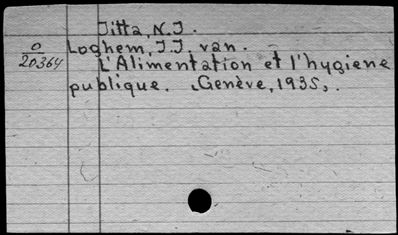 Jitta, N.J.
O
20364
Loghem, J.J. van.
L'Alimentation et l'hygiene
publique. (Genève, 1935).